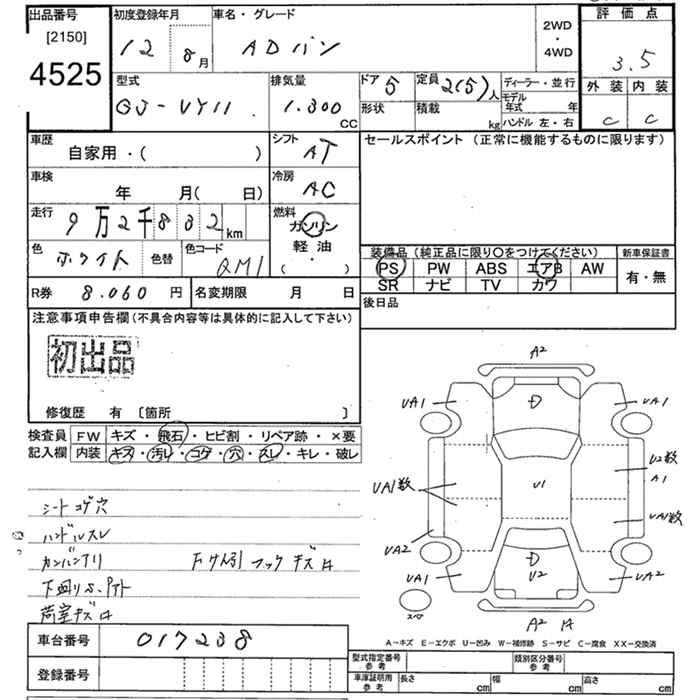 出品番号 [2150] 4525
初度登録年月 12 8月
車名・グレード ADバン
2WD ・ 4WD
評価点 3.5
外装 内装
C C
型式 GJ-VY11
排気量 1.300 CC
ドア 5
形状
定員 2(5)人
積載 kg
ディーラー・並行
モデル年式 年
ハンドル 左・右
車歴 自家用・( )
シフト AT
セールスポイント (正常に機能するものに限ります)
車検 年 月( 日)
冷房 AC
走行 9万2千832km
燃料 ガソリン 軽油 ( ・ )
色 ホワイト 色替 色コード QM1
装備品 (純正品に限り○をつけてください)
新車保証書
PS PW ABS エアB AW
有・無
SR ナビ TV カワ
R券 8.060円 名変期限 月 日
後日品
注意事項申告欄 (不具合内容等は具体的に記入して下さい)
初出品
修復歴 有 〔箇所 〕
検査員 FW キズ・飛石・ヒビ割・リペア跡・×要
記入欄 内装 キズ・汚レ・コゲ・穴・スレ・キレ・破レ
シートコゲ穴
ハンドルスレ
下回りS.
荷室キズ
A2
UA1 D UA1
U2数
A1
UA1数 U1 UA1数
UA2 D
UA1 U2 UA2
スペア
A2
A－キズ E－エクボ U－凹み W－補修跡 S－サビ C－腐食 XX－交換済
車台番号 017238
登録番号
型式指定番号 参考 類別区分番号 参考
車庫証明用 参考 長さ cm 幅 cm 高さ cm